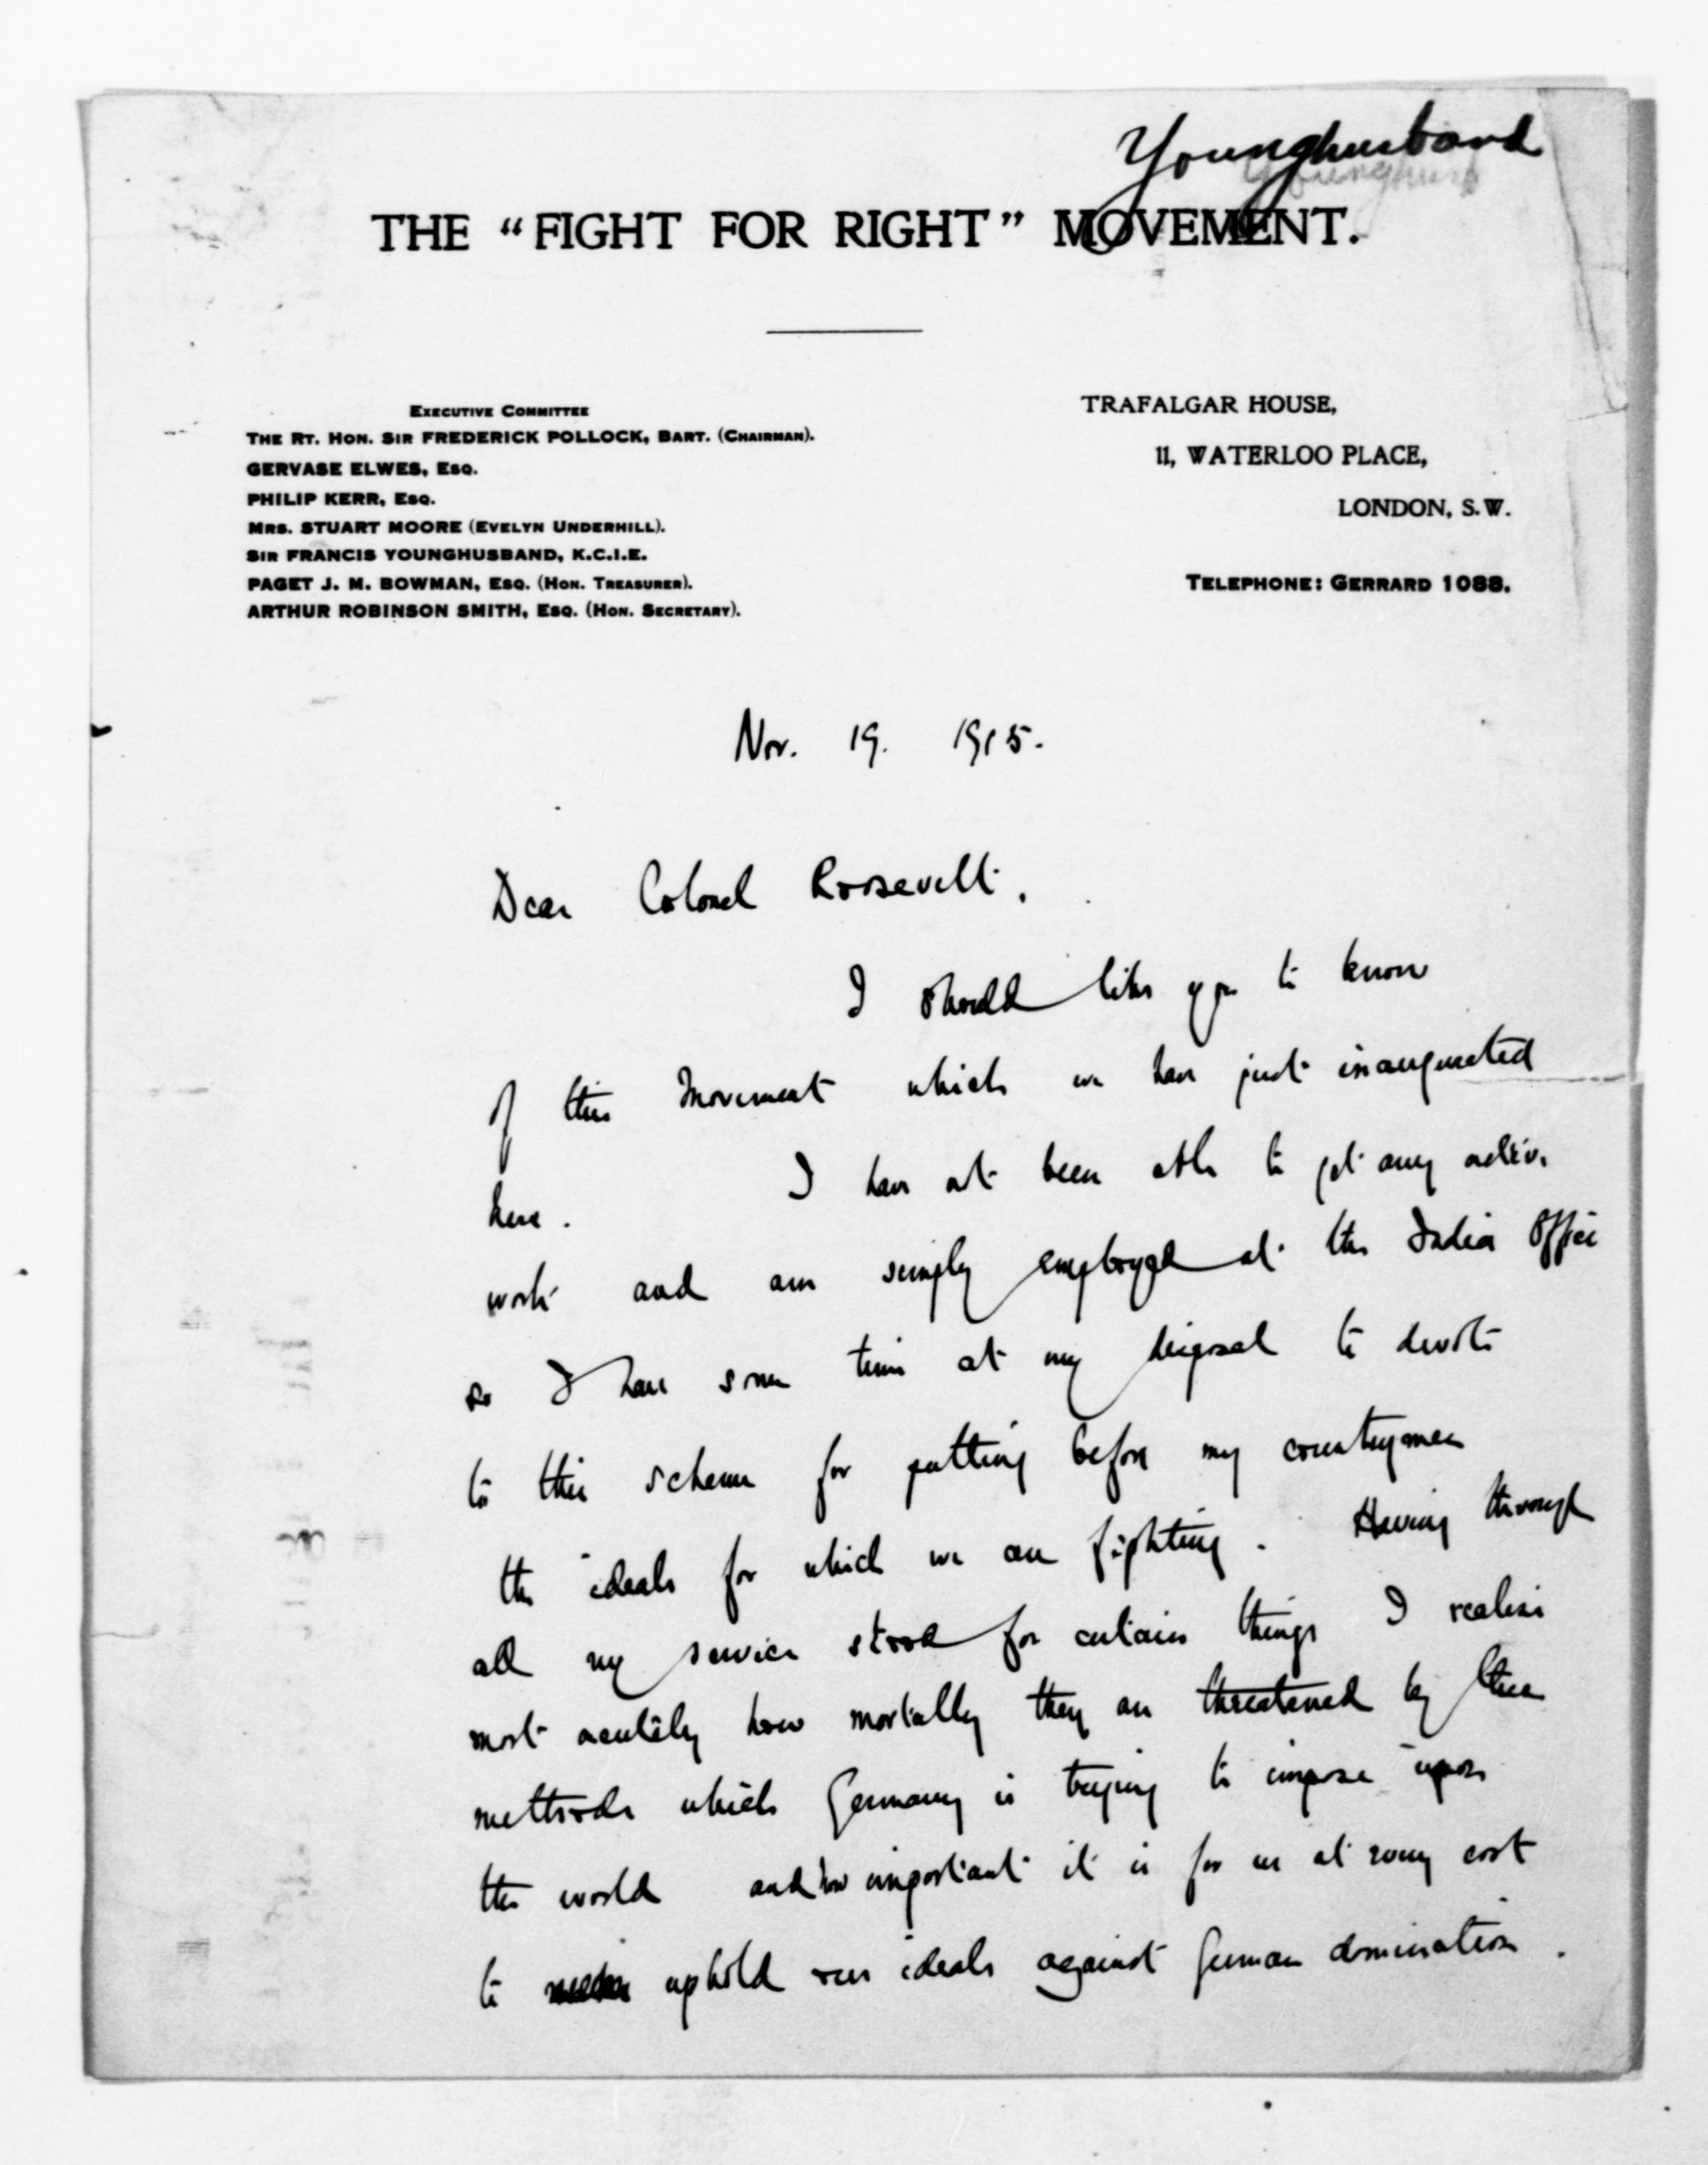 Younghusband
THE "FIGHT FOR RIGHT" MOVEMENT.
EXECUTIVE COMMITTEE
THE RT. HON. SIR FREDERICK POLLOCK, BART. (CHAIRMAN).
GERVASE ELWES, ESQ.
PHILIP KERR, ESQ.
MRS. STUART MOORE (EVELYN UNDERHILL).
SIR FRANCIS YOUNGHUSBAND, K.C.I.E.
PAGET J. M. BOWMAN, ESQ. (HON. TREASURER).
ARTHUR ROBINSON SMITH, ESQ. (HON. SECRETARY).
TRAFALGAR HOUSE,
11, WATERLOO PLACE,
LONDON, S.W.
TELEPHONE: GERRARD 1088.
Nov. 19. 1915.
Dear Colonel Roosevelt,
I should like you to know
of this Movement which we have just inaugurated
here. I have not been able to get any active
work and am simply employed at the India Office
so I have some time at my disposal to devote
to this scheme for putting before my countrymen
the ideals for which we are fighting. Having through
all my service stood for certain things I realise
most acutely how mortally they are threatened by these
methods which Germany is trying to impose upon
the world and how important it is for us at every cost
to uphold our ideals against German domination.